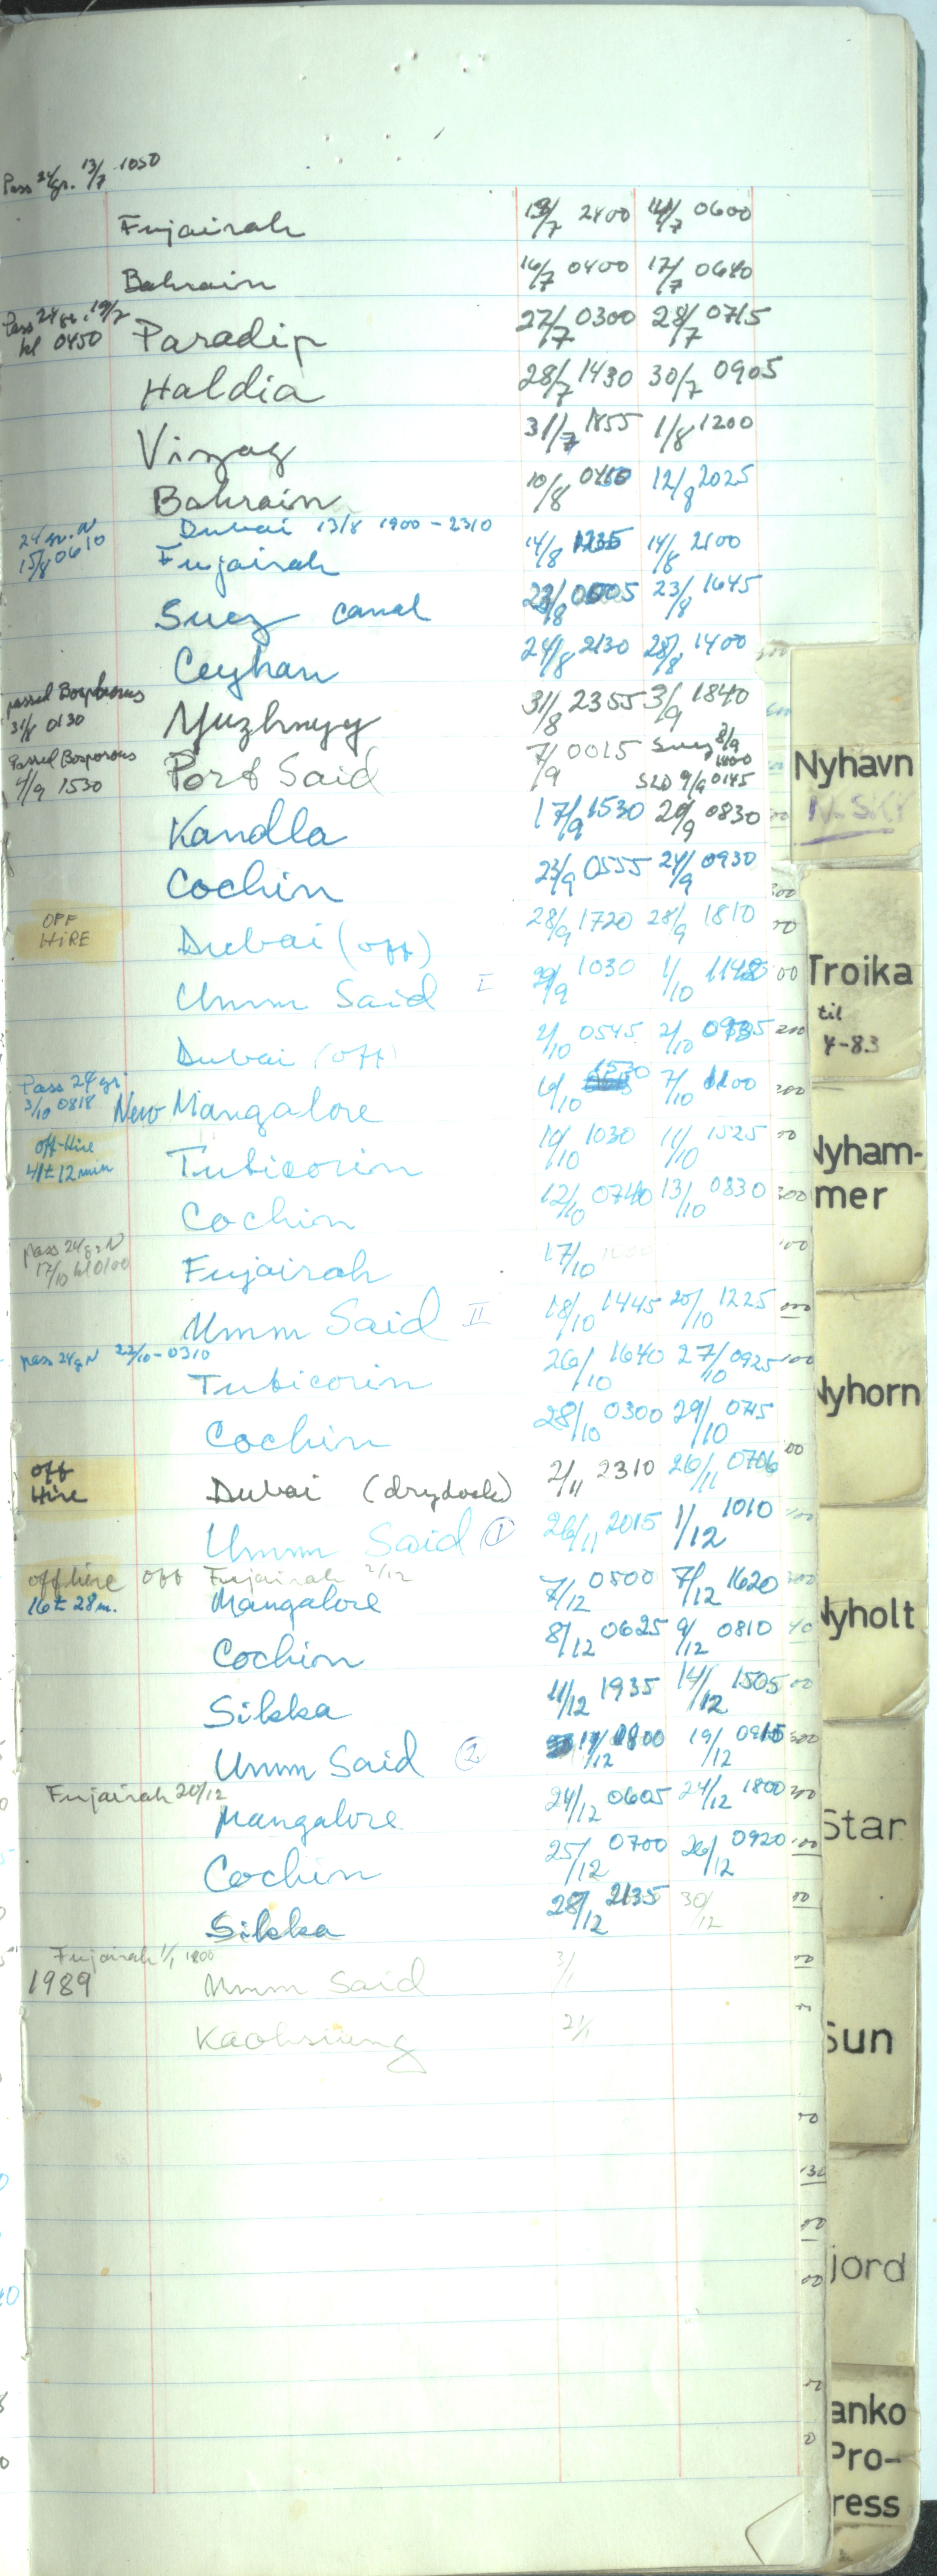 Pass 24gr. 13/7 1050
Fujairah 13/7 2400 14/7 0600
Bahrain 16/7 0400 17/7 0640
Pass 24gr. 19/7
kl 0450 Paradip 27/7 0300 28/7 0715
Haldia 28/7 1430 30/7 0905
Vizag 31/7 1855 1/8 1200
Bahrain 10/8 12/8 2025
Dubai 13/8 1900 - 2310
24 gr. N
15/8 0610 Fujairah 14/8 1235 14/8 2100
Suez canal 23/8 23/8 1645
Ceyhan 24/8 2130 28/8 1400
passed Bosphorous
31/8 0130 Yuzhnyy 31/8 2355 3/9 1840
Passed Bosporous
4/9 1530 Port Said 7/9 0015 Suez 8/9 1400
SLD 9/9 0145
Kandla 17/9 1530 20/9 0830
Cochin 23/9 0555 24/9 0930
OFF
HIRE Dubai (off) 28/9 1720 28/9 1810
Umm Said I 29/9 1030 1/10
Dubai (off) 2/10 0545 2/10
Pass 24 gr.
3/10 0818 New Mangalore 6/10 1530 7/10
off-Hire
41t 12 min Tuticorin 10/10 1030 11/10 1525
Cochin 12/10 0740 13/10 0830
pass 24 gr N
17/10 kl 0100 Fujairah 17/10
Umm Said II 18/10 1445 20/10 1225
pass 24 gr N 22/10 - 0310
Tuticorin 26/10 1640 27/10 0925
Cochin 28/10 0300 29/10 0715
off
Hire Dubai (drydock) 2/11 2310 26/11 0706
Umm Said 1 26/11 2015 1/12 1010
off hire off Fujairah 2/12
16t 28m. Mangalore 7/12 0500 7/12 1620
Cochin 8/12 0625 9/12 0810
Sikka 11/12 1935 14/12 1505
Umm Said 2 17/12 1800 19/12 0915
Fujairah 20/12
Mangalore 24/12 0605 24/12 1800
Cochin 25/12 0700 26/12 0920
Sikka 28/12 2135 30/12
Fujairah 1/1 1800
1989 Umm Said 3/1
Kaohsiung 21/1
Nyhavn
Troika
til
4-83
Nyham-
mer
Nyhorn
Nyholt
Star
Sun
jord
anko
Pro-
ress